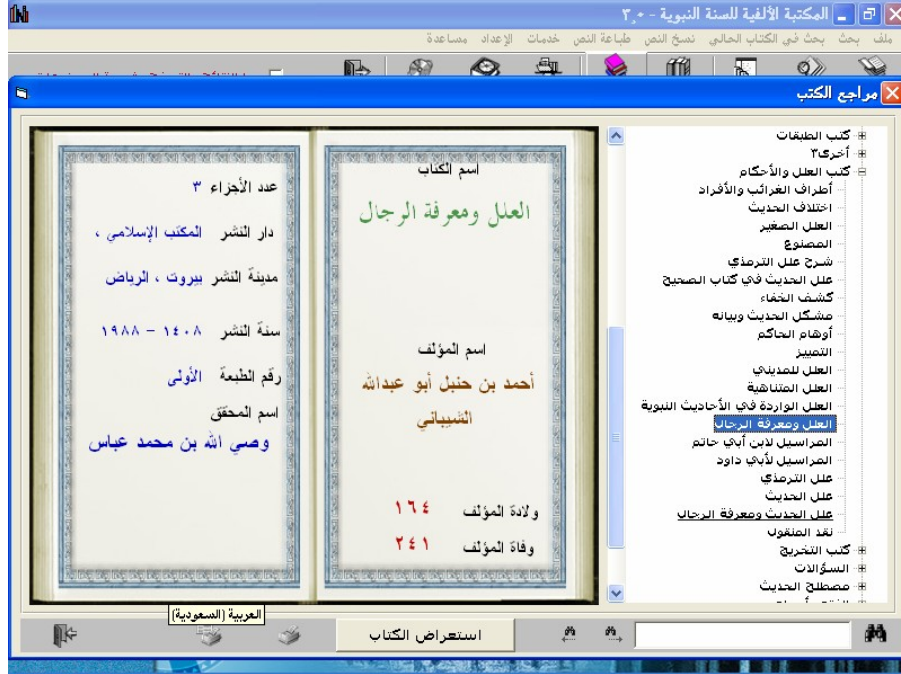 المكتبة الألفية للسنة النبوية - ٣,٠
ملف بحث بحث في الكتاب الحالي نسخ النص طباعة النص خدمات الإعداد مساعدة
مراجع الكتب
كتب الطبقات
أخرى٣
كتب العلل والأحكام
أطراف الغرائب والأفراد
اختلاف الحديث
العلل الصغير
المصنوع
شرح علل الترمذي
علل الحديث في كتاب الصحيح
كشف الخفاء
مشكل الحديث وبيانه
أوهام الحاكم
التمييز
العلل للمديني
العلل المتناهية
العلل الواردة في الأحاديث النبوية
العلل ومعرفة الرجال
المراسيل لابن أبي حاتم
المراسيل لأبي داود
علل الترمذي
علل الحديث
علل الحديث ومعرفة الرجال
نقد المنقول
كتب التخريج
السؤالات
مصطلح الحديث
اسم الكتاب
العلل ومعرفة الرجال
اسم المؤلف
أحمد بن حنبل أبو عبدالله
الشيباني
ولادة المؤلف ١٦٤
وفاة المؤلف ٢٤١
عدد الأجزاء ٣
دار النشر المكتب الإسلامي ،
مدينة النشر بيروت ، الرياض
سنة النشر ١٤٠٨ - ١٩٨٨
رقم الطبعة الأولى
اسم المحقق
وصي الله بن محمد عباس
العربية (السعودية)
استعراض الكتاب